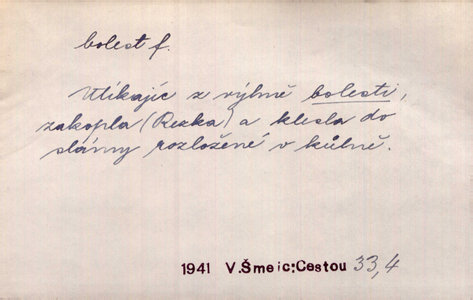 bolest f.
Utíkajíc z výhně bolesti,
zakopla (Rezka) a klesla do
slámy rozložené v kůlně.
1941 V.Šmejc:Cestou 33,4